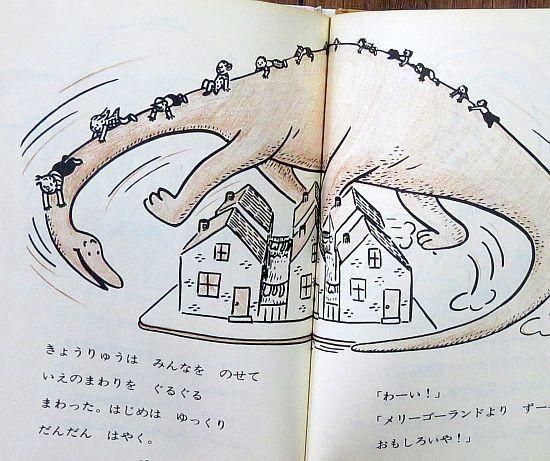 きょうりゅうは　みんなを　のせて
いえのまわりを　ぐるぐる
まわった。はじめは　ゆっくり
だんだん　はやく。
「わーい！」
「メリーゴーランドより　ずー
おもしろいや！」